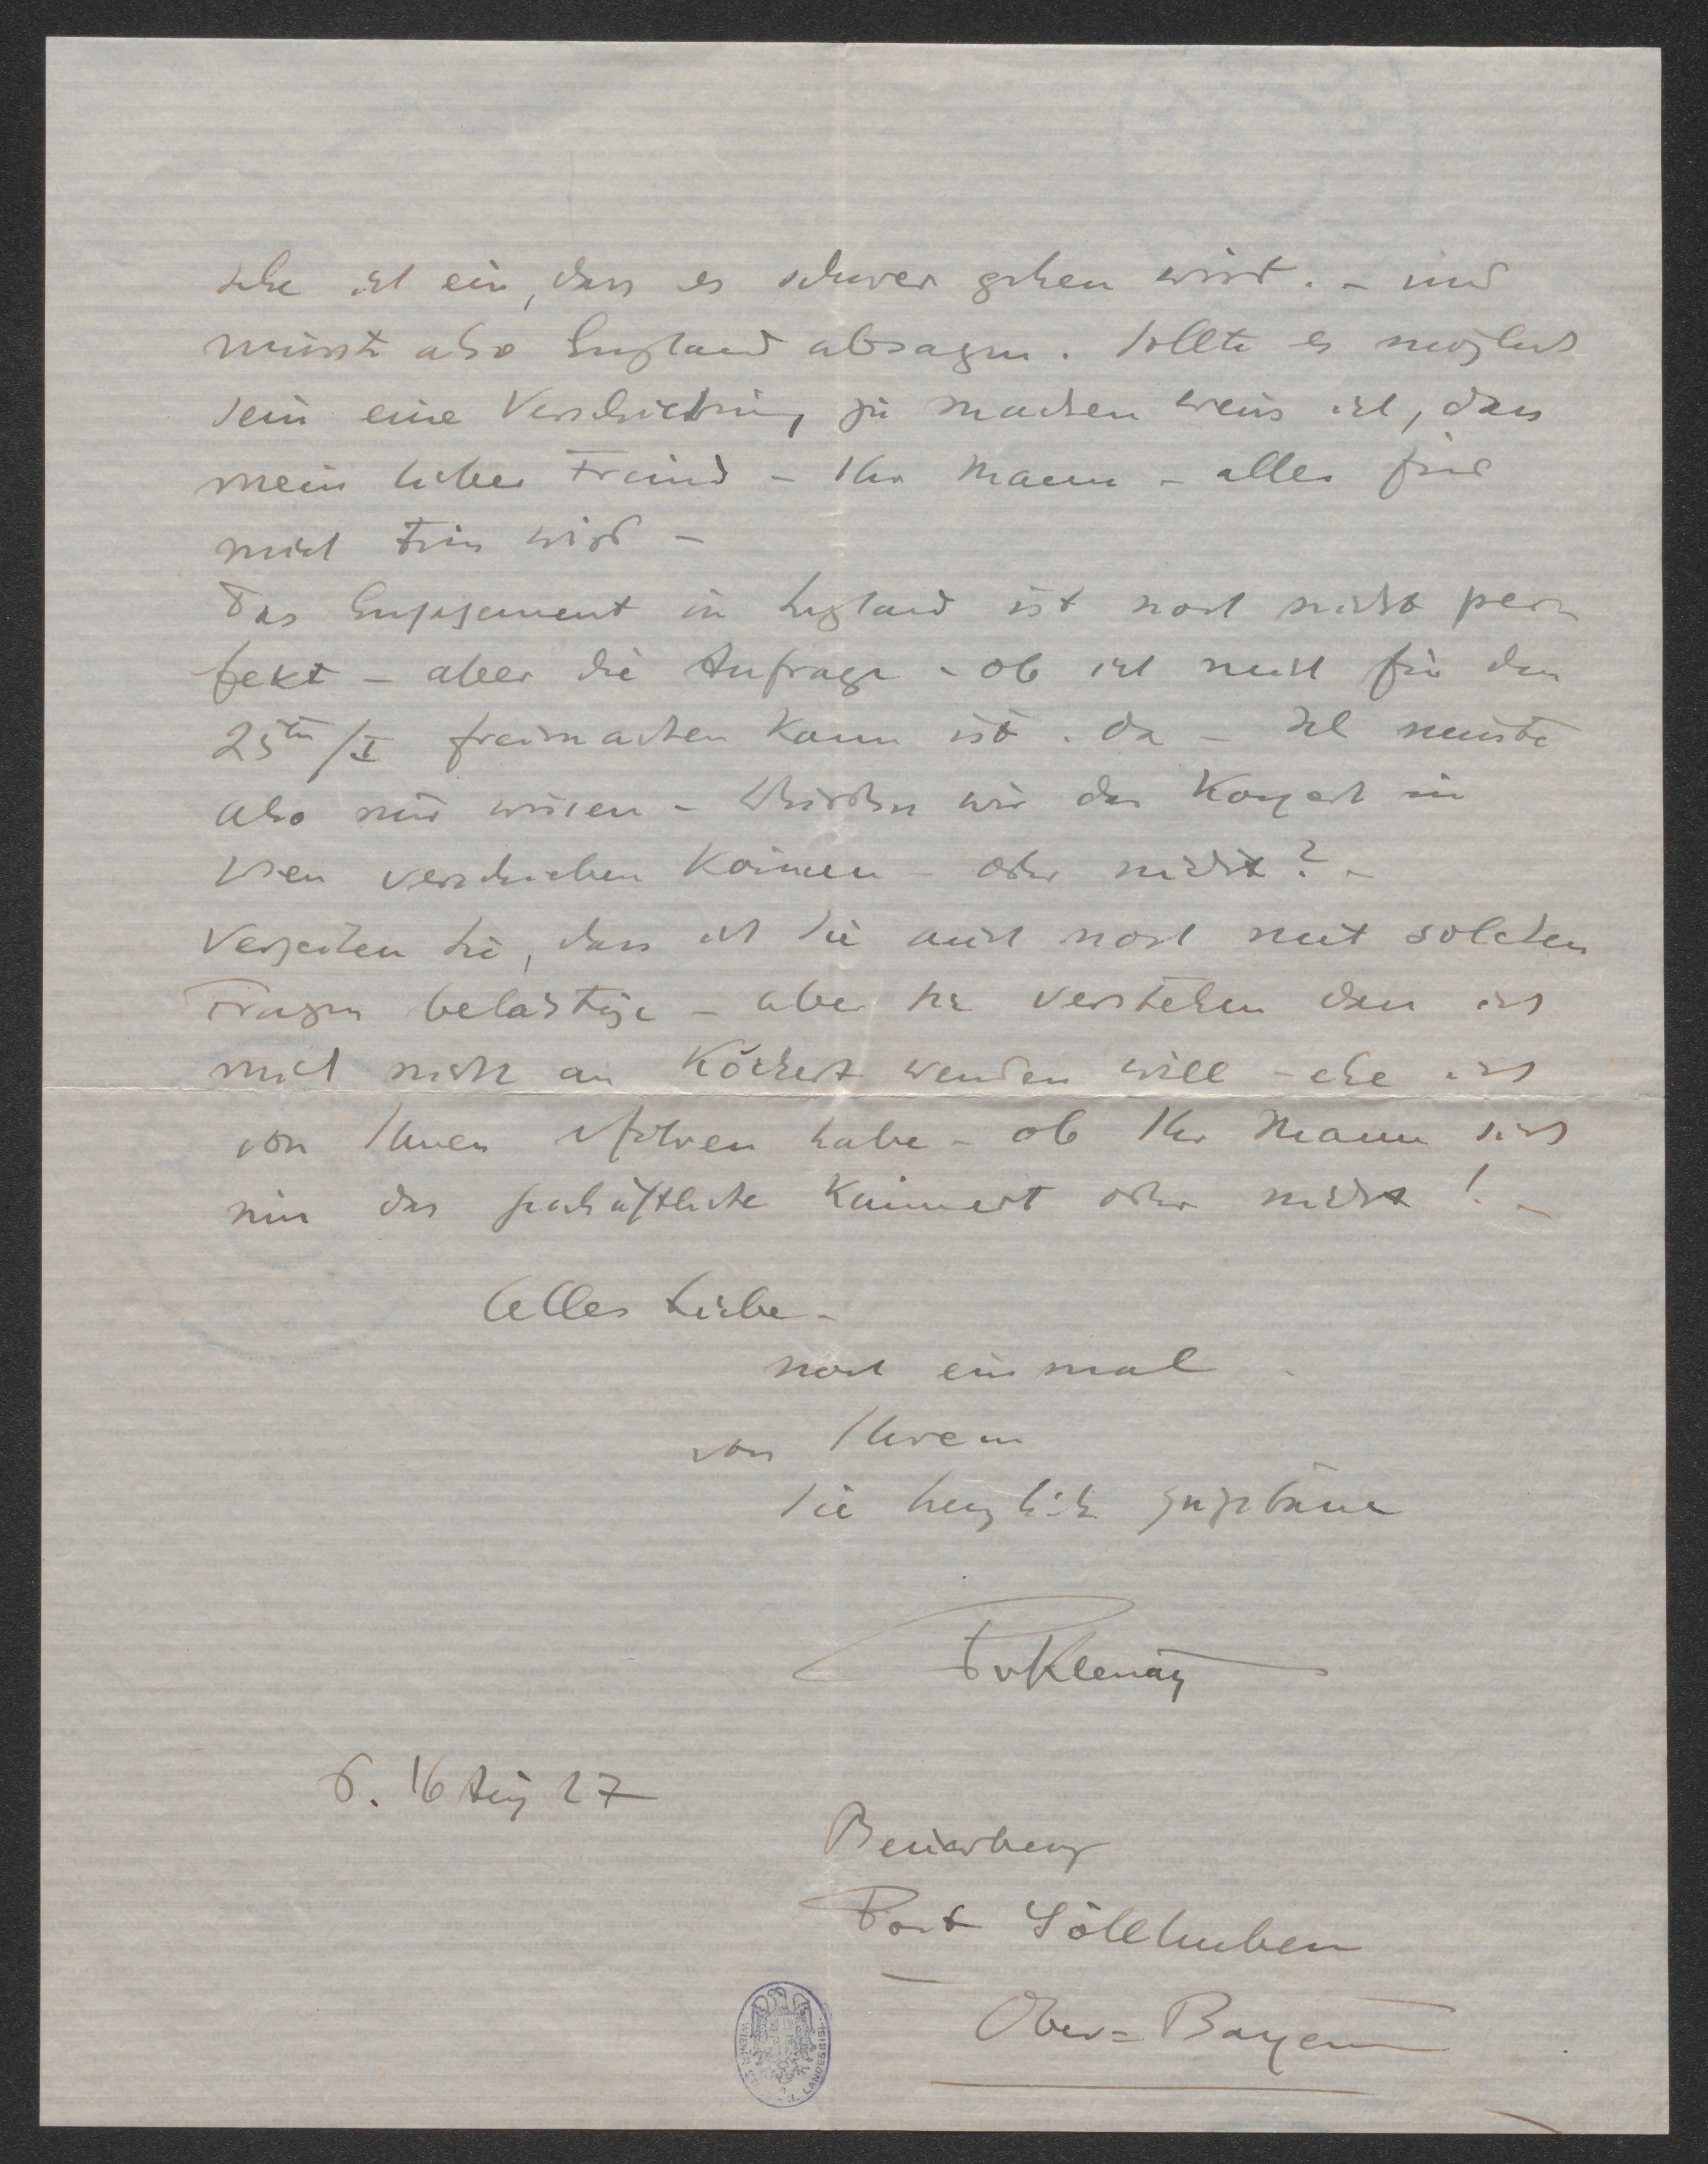 sehe ich ein, dass es schwer gehen wird. – und
müsste also England absagen. Sollte es möglich
sein eine Verschiebung zu machen weiss ich, dass
mein lieber Freund – Ihr Mann – alles für
mich tun wird –
Das Engagement in England ist noch nicht per-
fekt – aber die Anfrage – ob ich mich für den
25ten/I freimachen kann ist da – Ich müsste
also nur wissen – Würden wir das Konzert in
Wien verschieben können – oder nicht? –
Verzeihen Sie, dass ich Sie auch noch mit solchen
Fragen belästige – aber Sie verstehen dass ich
mich nicht an Köchert wenden will – ehe ich
von Ihnen erfahren habe – ob Ihr Mann sich
um das geschäftliche kümmert oder nicht! –
Alles Liebe –
noch einmal
von Ihrem
Sie herzlich
PvKlenau
d. 16 Aug 27
Beuerberg
Post Söllhuben
Ober=Bayern
WIENER LANDESBIBL.